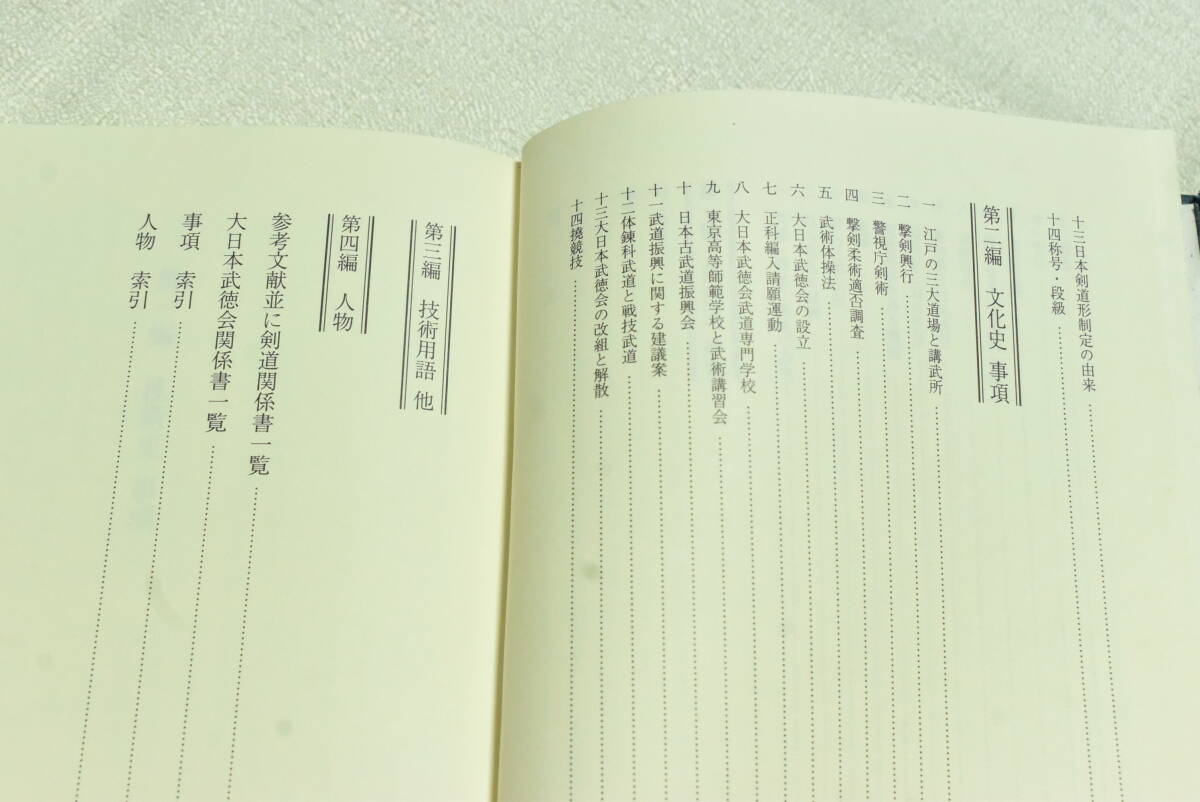 十三日本剣道形制定の由来
十四称号・段級
第二編 文化史 事項
一 江戸の三大道場と講武所
二 撃剣興行
三 警視庁剣術
四 撃剣柔術適否調査
五 武術体操法
六 大日本武徳会の設立
七 正科編入請願運動
八 大日本武徳会武道専門学校
九 東京高等師範学校と武術講習会
十 日本古武道振興会
十一武道振興に関する建議案
十二体錬科武道と戦技武道
十三大日本武徳会の改組と解散
十四撓競技
第三編 技術用語 他
第四編 人物
参考文献並に剣道関係書一覧
大日本武徳会関係書一覧
事項 索引
人物 索引